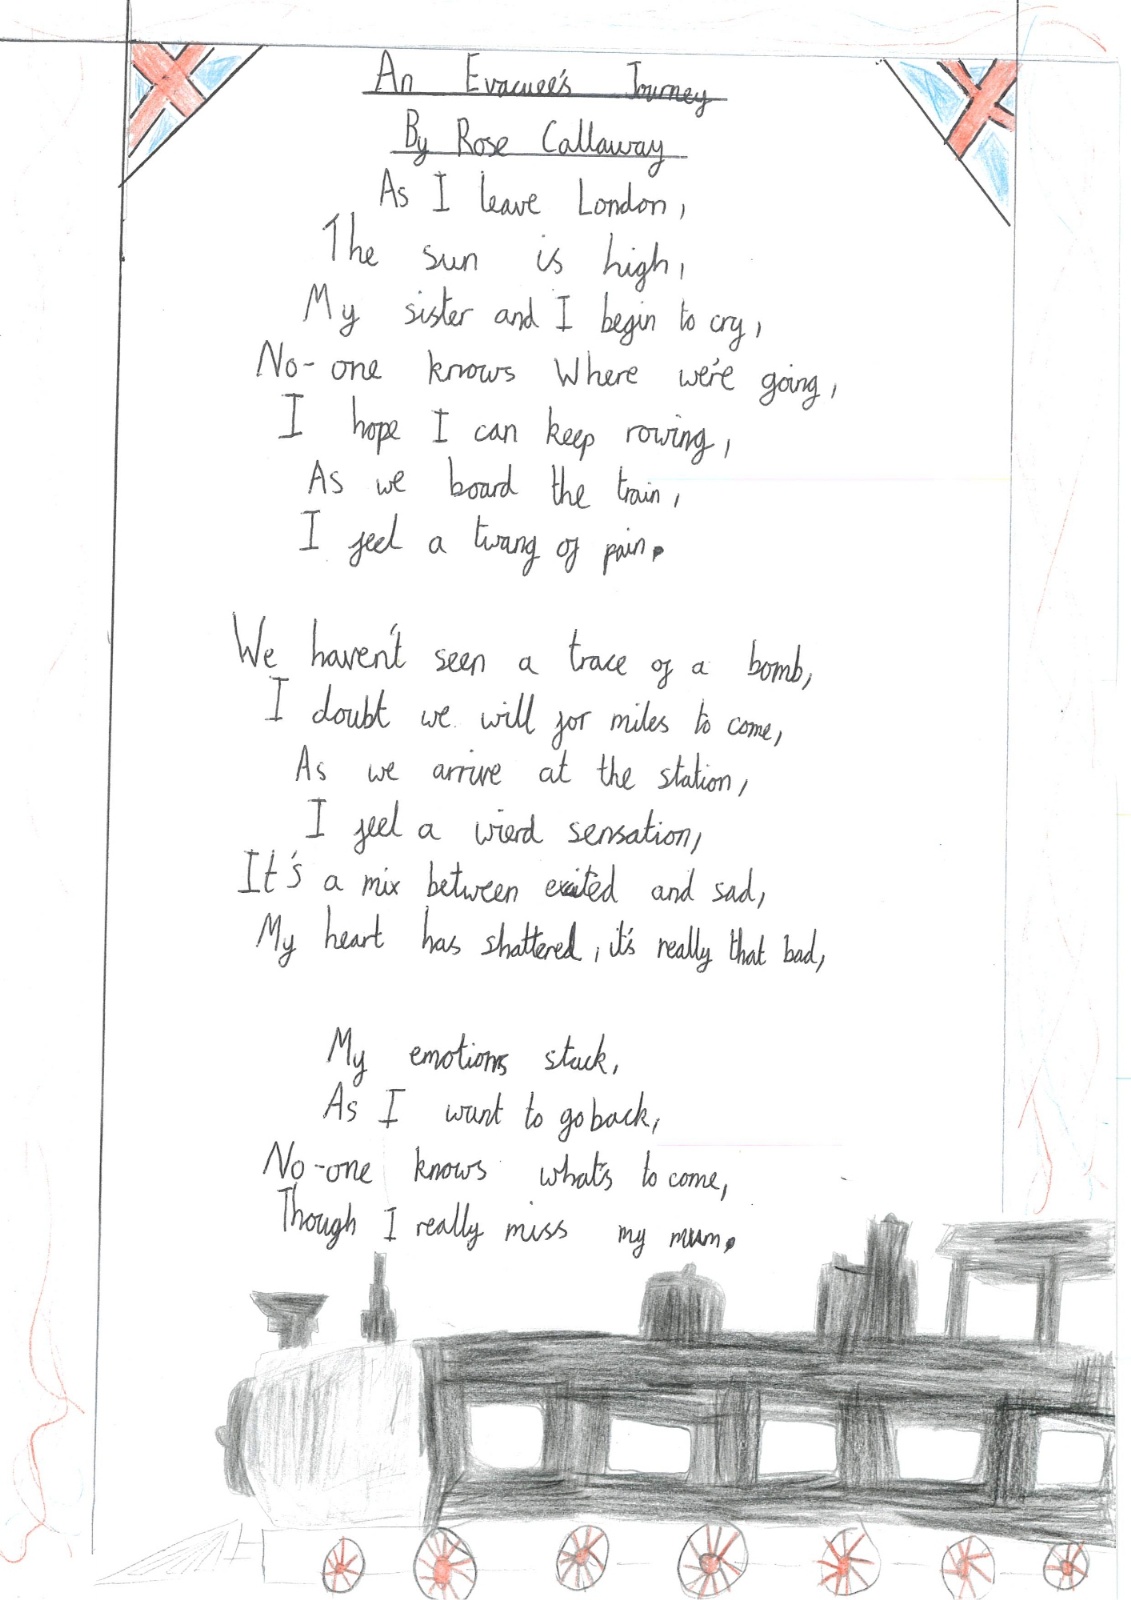 An Evacuee's Journey
By Rose Callaway
As I leave London,
The sun is high,
My sister and I begin to cry,
No-one knows Where we're going,
I hope I can keep rowing,
As we board the train,
I feel a twang of pain.
We haven't seen a trace of a bomb,
I doubt we will for miles to come,
As we arrive at the station,
I feel a wierd sensation,
It's a mix between exited and sad,
My heart has shattered, it's really that bad,
My emotions stack,
As I want to go back,
No-one knows what's to come,
Though I really miss my mum.